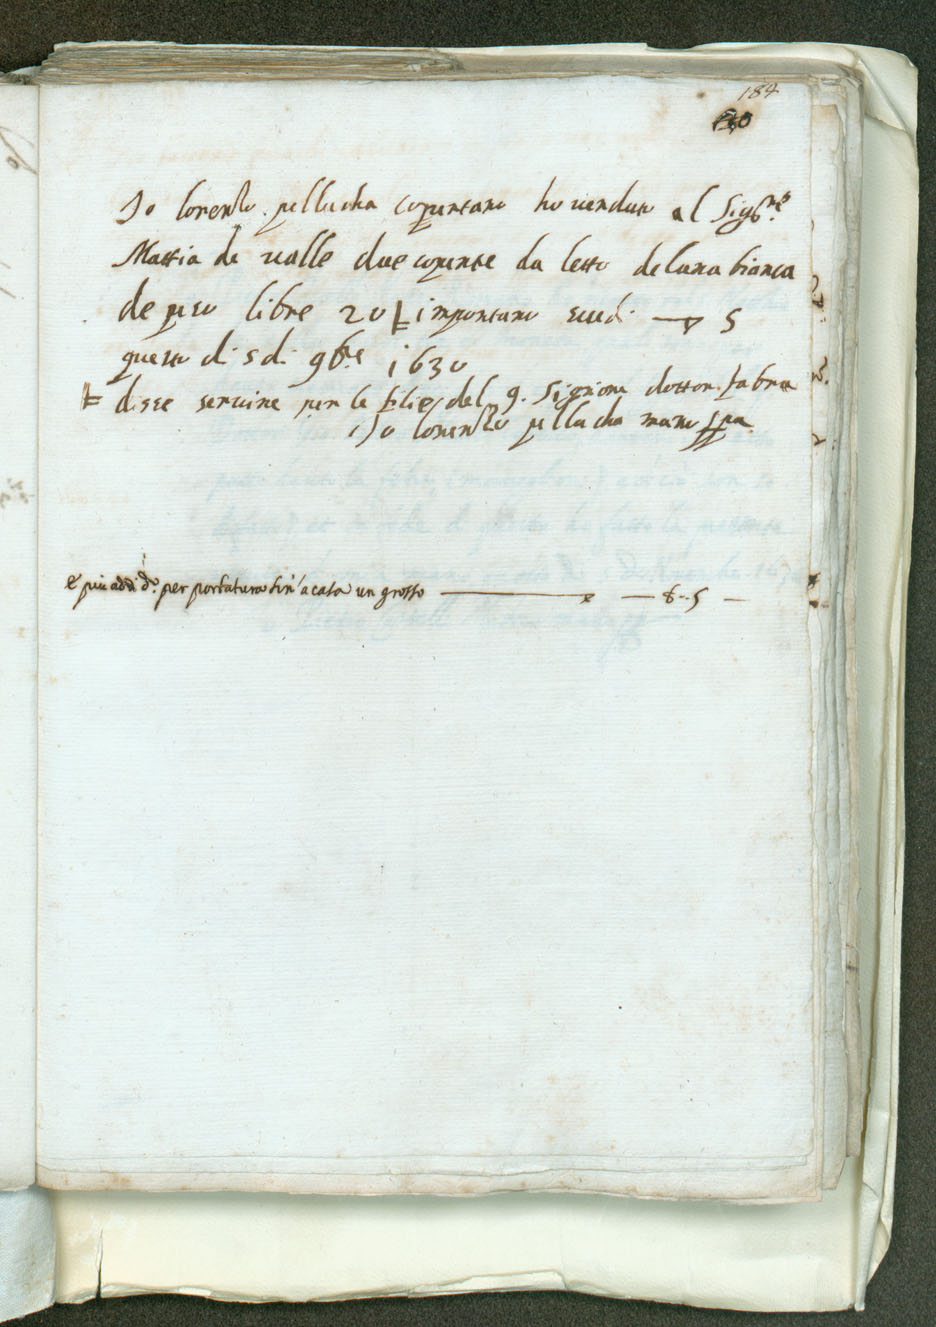 184
Io lorenzo pellucha copertaro ho venduto al Sig.re
Mattia de valle due coperte da letto de lana bianca
de peso libre 20 importano scudi — 5
questo di 5 di 9bre 1630
disse servire per le filie del q. Signore dottor fabra
Io lorenzo pellucha mano ppa
E più addi do. per portatura sin'a casa un grosso — 8-5 —